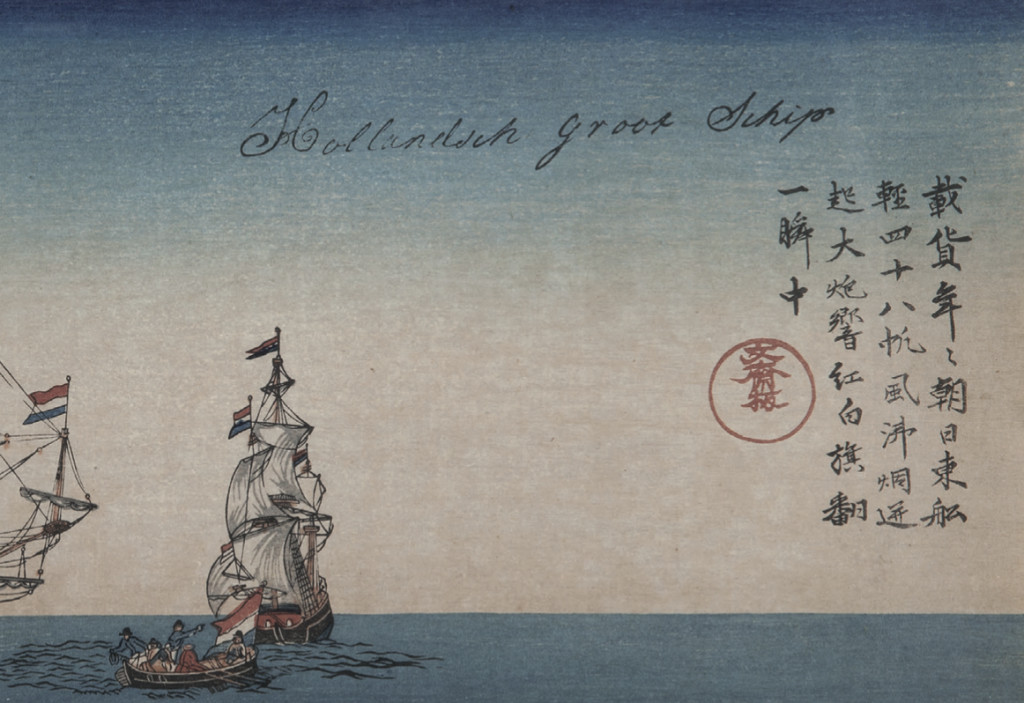 Hollandsch groot Schip
載貨年〻朝日東舩
輕四十八帆風沸烟迸
起大炮響紅白旗翻
一瞬中
文齋版